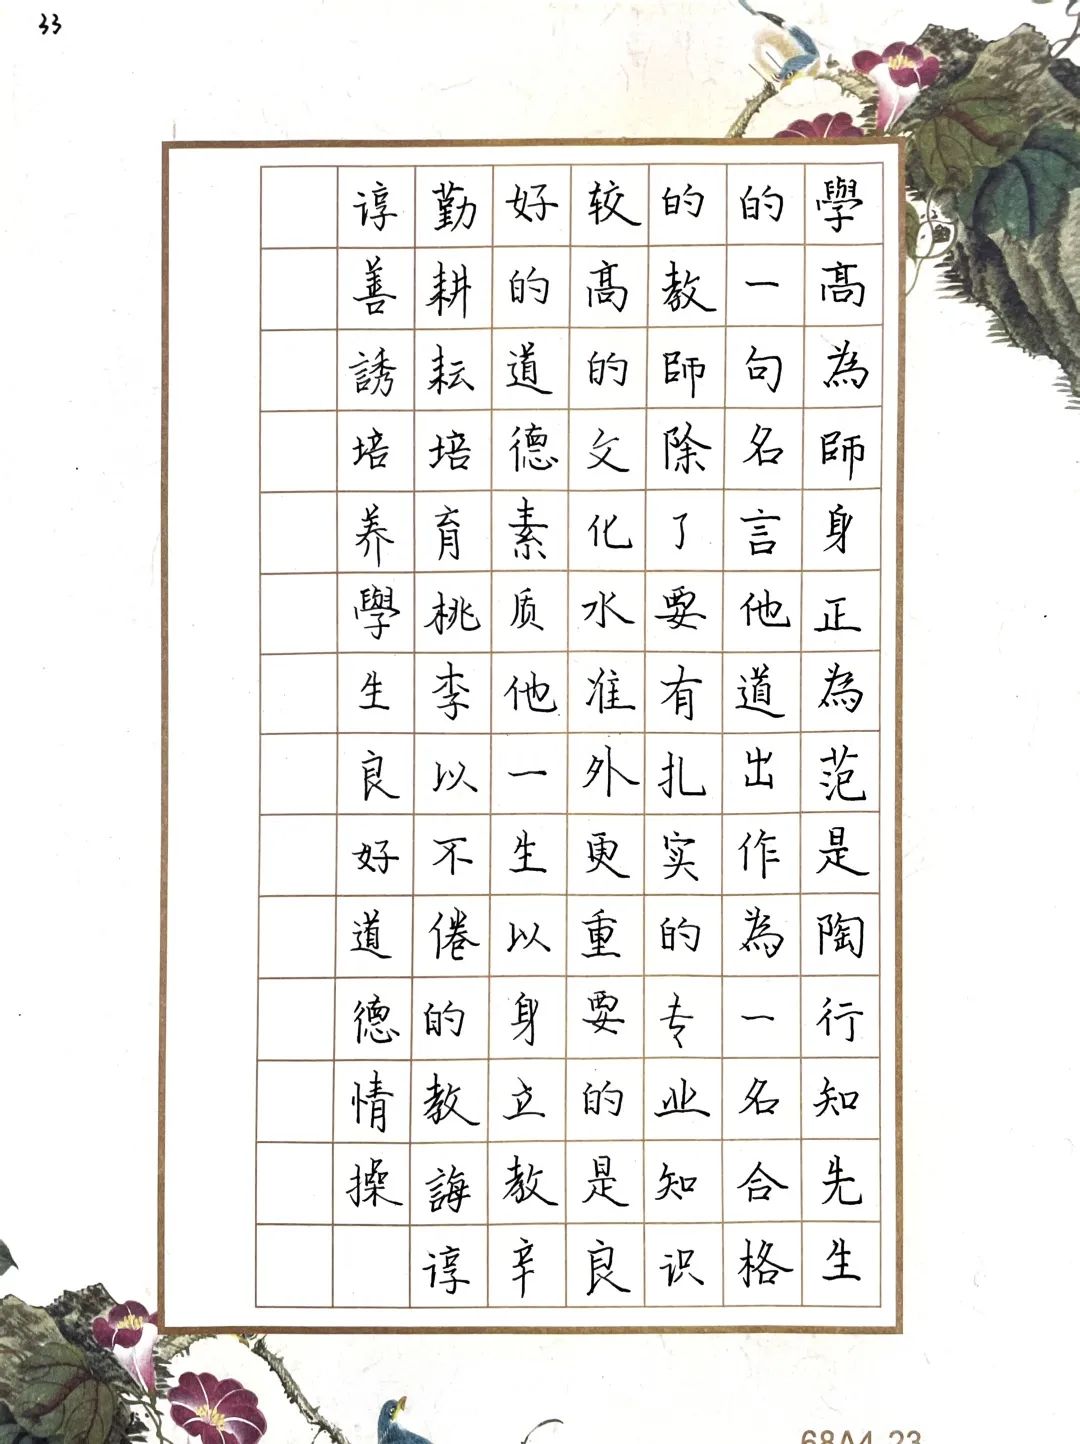 33
學高為師身正為范是陶行知先生
的一句名言他道出作為一名合格
的教師除了要有扎实的专业知识
较高的文化水准外更重要的是良
好的道德素质他一生以身立教辛
勤耕耘培育桃李以不倦的教誨谆
谆善誘培养學生良好道德情操
68A4-23